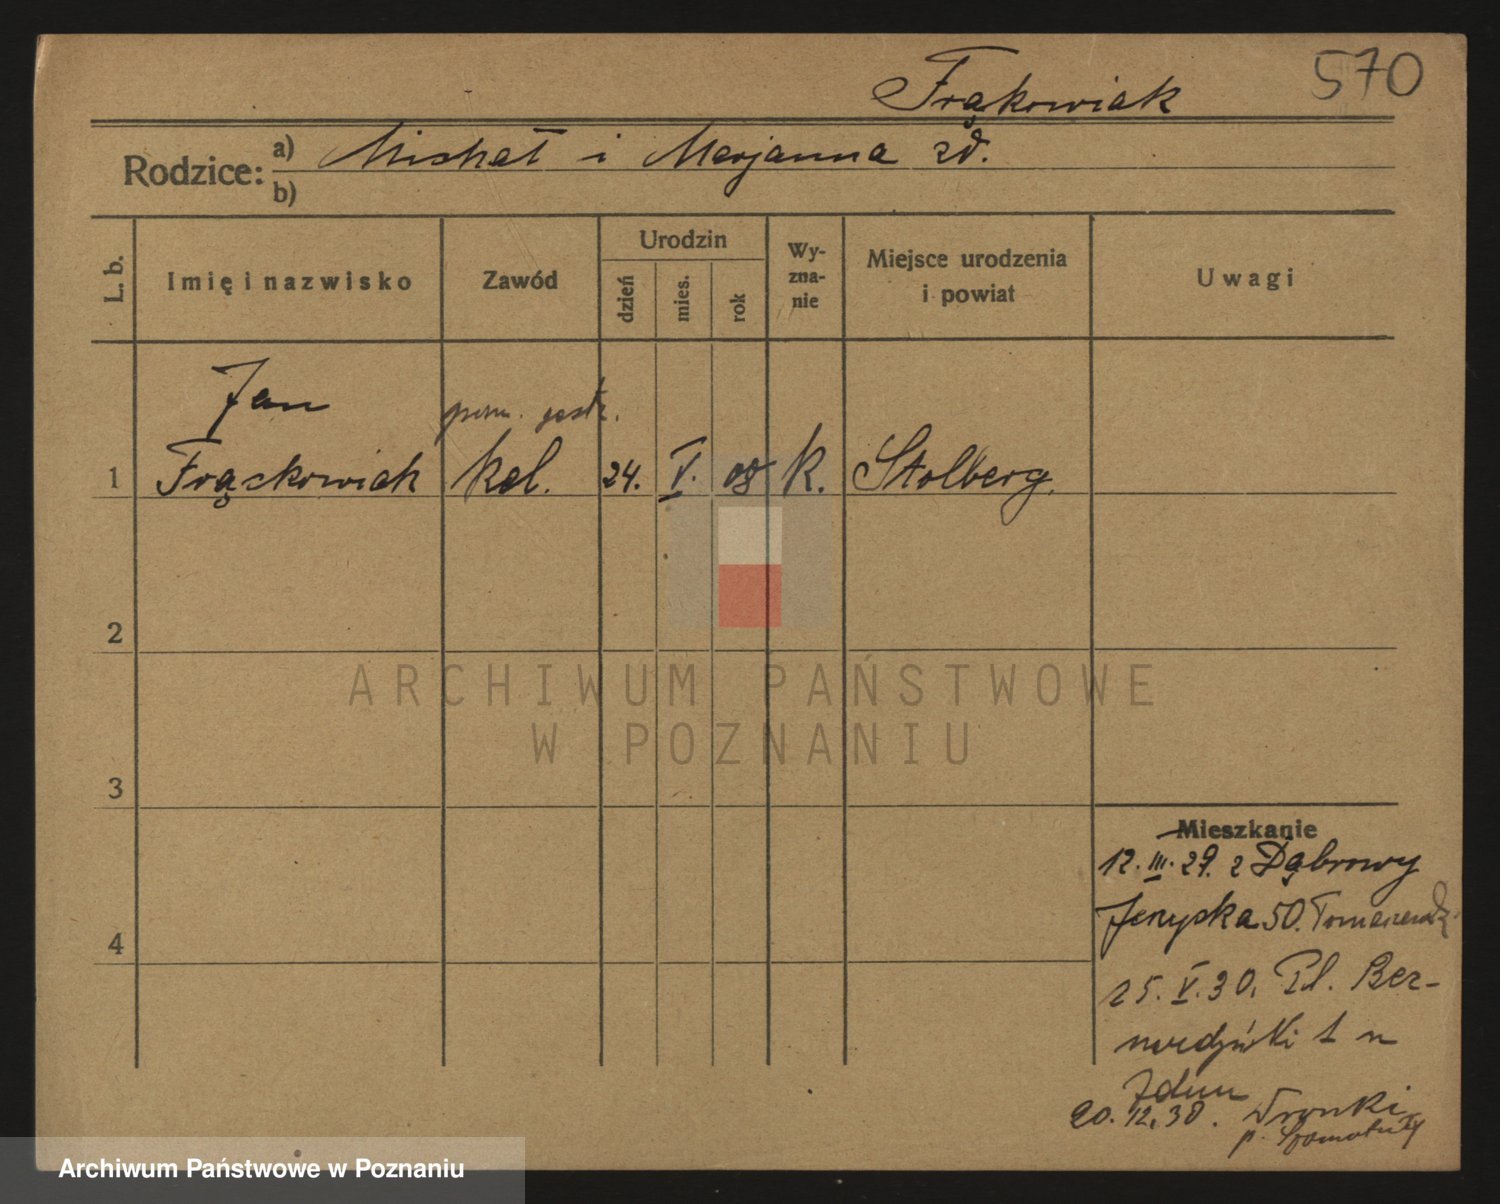 570
Frąkowiak
Rodzice: a) Michał i Marjanna zd.
b)
L. b.
Imię i nazwisko
Zawód
Urodzin
dzień
mies.
rok
Wy-
zna-
nie
Miejsce urodzenia
i powiat
Uwagi
Jan pom. gastr.
1 Frąckowiak kel. 24. V. 08 k. Stolberg.
2
3
4
Mieszkanie
12. III. 29. z Dąbrowy
50.
25. V. 30. Pl. Ber-
nardyński 1 n
20.12.30. Wronki
p. Szamotuły
ARCHIWUM PAŃSTWOWE
W POZNANIU
Archiwum Państwowe w Poznaniu